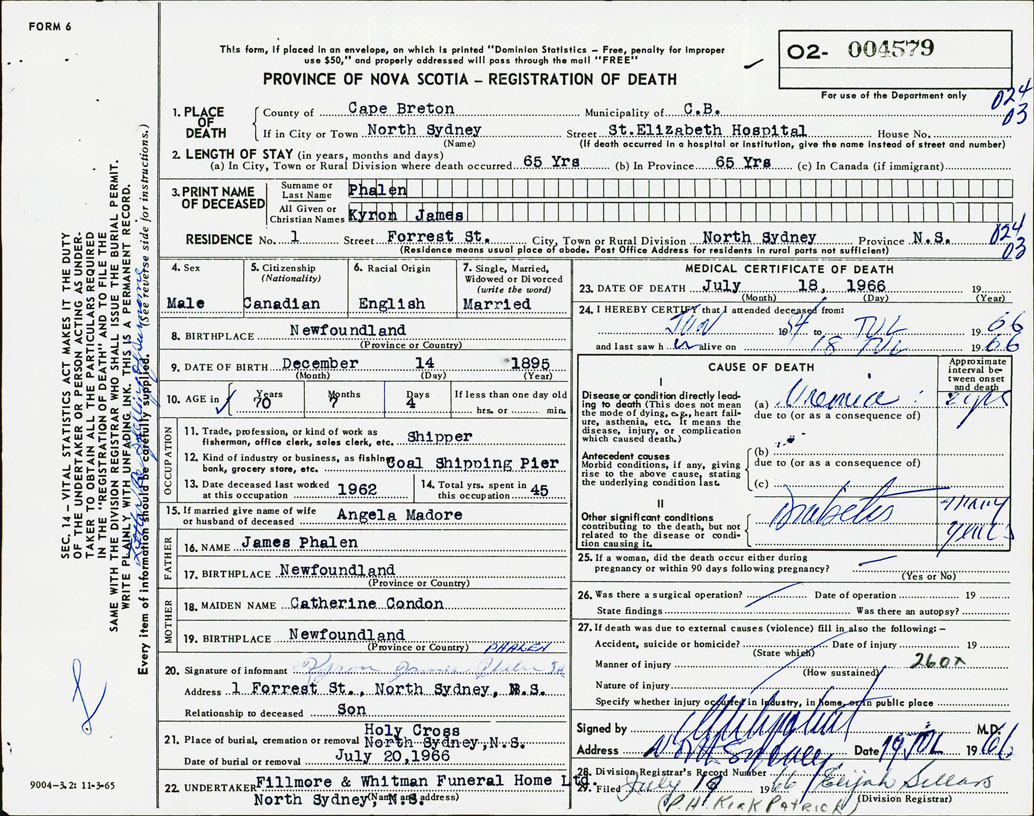 FORM 6
This form, if placed in an envelope, on which is printed "Dominion Statistics – Free, penalty for improper
use $50," and properly addressed will pass through the mail "FREE"
PROVINCE OF NOVA SCOTIA – REGISTRATION OF DEATH
O2- 004579
For use of the Department only
024
03
1. PLACE OF DEATH
County of Cape Breton Municipality of C.B.
If in City or Town North Sydney Street St.Elizabeth Hospital House No.
(Name) (If death occurred in a hospital or institution, give the name instead of street and number)
2. LENGTH OF STAY (in years, months and days)
(a) In City, Town or Rural Division where death occurred 65 Yrs (b) In Province 65 Yrs (c) In Canada (if immigrant)
3. PRINT NAME OF DECEASED
Surname or Last Name Phalen
All Given or Christian Names Kyron James
RESIDENCE No. 1 Street Forrest St. City, Town or Rural Division North Sydney Province N.S.
(Residence means usual place of abode. Post Office Address for residents in rural parts not sufficient)
024
03
4. Sex
Male
5. Citizenship
(Nationality)
Canadian
6. Racial Origin
English
7. Single, Married,
Widowed or Divorced
(write the word)
Married
8. BIRTHPLACE Newfoundland
(Province or Country)
9. DATE OF BIRTH December 14 1895
(Month) (Day) (Year)
10. AGE in Years Months Days If less than one day old
70 7 4 hrs. or min.
OCCUPATION
11. Trade, profession, or kind of work as
fisherman, office clerk, sales clerk, etc. Shipper
12. Kind of industry or business, as fishing
bank, grocery store, etc. Coal Shipping Pier
13. Date deceased last worked
at this occupation 1962
14. Total yrs. spent in
this occupation 45
15. If married give name of wife
or husband of deceased Angela Madore
FATHER
16. NAME James Phalen
17. BIRTHPLACE Newfoundland
(Province or Country)
MOTHER
18. MAIDEN NAME Catherine Condon
19. BIRTHPLACE Newfoundland
(Province or Country) PHALEN
20. Signature of informant Kyron James Phalen
Address 1 Forrest St., North Sydney, N.S.
Relationship to deceased Son
21. Place of burial, cremation or removal Holy Cross
North Sydney,N.S.
Date of burial or removal July 20,1966
22. UNDERTAKER Fillmore & Whitman Funeral Home Ltd.
North Sydney, N.S.
(Name and address)
MEDICAL CERTIFICATE OF DEATH
23. DATE OF DEATH July 18, 1966 19
(Month) (Day) (Year)
24. I HEREBY CERTIFY that I attended deceased from:
JUN 19 54 to JUL 19 66
and last saw h im alive on 18 JUL 19 66
CAUSE OF DEATH
Approximate
interval be-
tween onset
and death
I
Disease or condition directly lead-
ing to death (This does not mean
the mode of dying, e.g., heart fail-
ure, asthenia, etc. It means the
disease, injury, or complication
which caused death.)
(a) Uremia
due to (or as a consequence of)
Antecedent causes
Morbid conditions, if any, giving
rise to the above cause, stating
the underlying condition last.
(b)
due to (or as a consequence of)
(c)
II
Other significant conditions
contributing to the death, but not
related to the disease or condi-
tion causing it.
Diabetes
many
years
25. If a woman, did the death occur either during
pregnancy or within 90 days following pregnancy?
(Yes or No)
26. Was there a surgical operation? Date of operation 19
State findings Was there an autopsy?
27. If death was due to external causes (violence) fill in also the following: –
Accident, suicide or homicide? Date of injury 19
(State which)
Manner of injury 260x
(How sustained)
Nature of injury
Specify whether injury occurred in industry, in home, or in public place
Signed by M.D.
Address North Sydney Date 19 JUL 19 66
28. Division Registrar's Record Number
29. Filed July 19 1966 Elijah Sellars
(P.H. KIRKPATRICK) (Division Registrar)
SEC. 14 – VITAL STATISTICS ACT MAKES IT THE DUTY
OF THE UNDERTAKER OR PERSON ACTING AS UNDER-
TAKER TO OBTAIN ALL THE PARTICULARS REQUIRED
IN THE "REGISTRATION OF DEATH" AND TO FILE THE
SAME WITH THE DIVISION REGISTRAR WHO SHALL ISSUE THE BURIAL PERMIT.
WRITE PLAINLY WITH UNFADING INK. THIS IS A PERMANENT RECORD.
Every item of information should be carefully supplied. (See reverse side for instructions.)
9004–3.2: 11-3-65